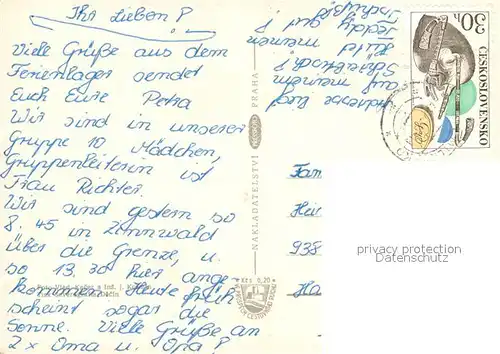 Ihr Lieben!
Viele Grüße aus dem
Ferienlager sendet
Euch Eure Petra
Wir sind in unserer
Gruppe 10 Mädchen,
Gruppenleiterin ist
Frau Richter.
Wir sind gestern so
8.45 in Zinnwald
über die Grenze, u.
so 13,30 hier ange
kommen. Heute früh
scheint sogar die
Sonne. Viele Grüße an
2x Oma u. Opa!
auf meinem
meinem
Teddy gut!
NAKLADATELSTVÍ
PRAHA
Kčs 0,20
30h
ČESKOSLOVENSKO
Fam
Hei
938
Ha
privacy protection
watermark